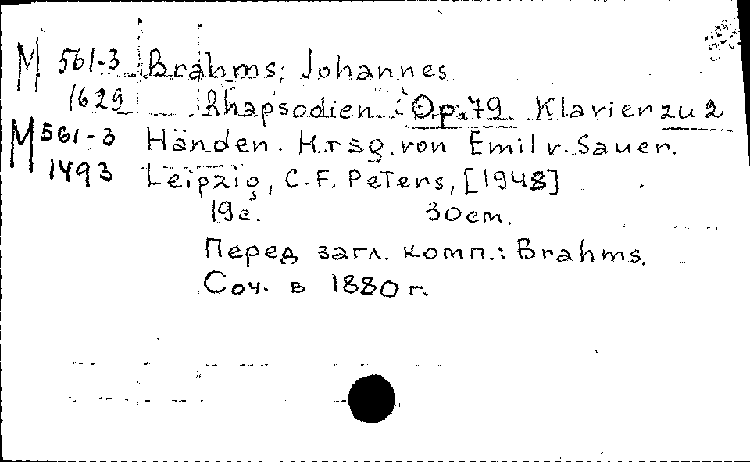 М 561-3 Brahms, Johannes
1629 Rhapsodien: Op. 79. Klavier zu 2
М 561-3 Händen. Hrsg. von Emil v. Sauer.
1493 Leipzig, C. F. Peters, [1948]
19 с. 30 cm.
Перед загл. комп.: Brahms.
Соч. в 1880 г.